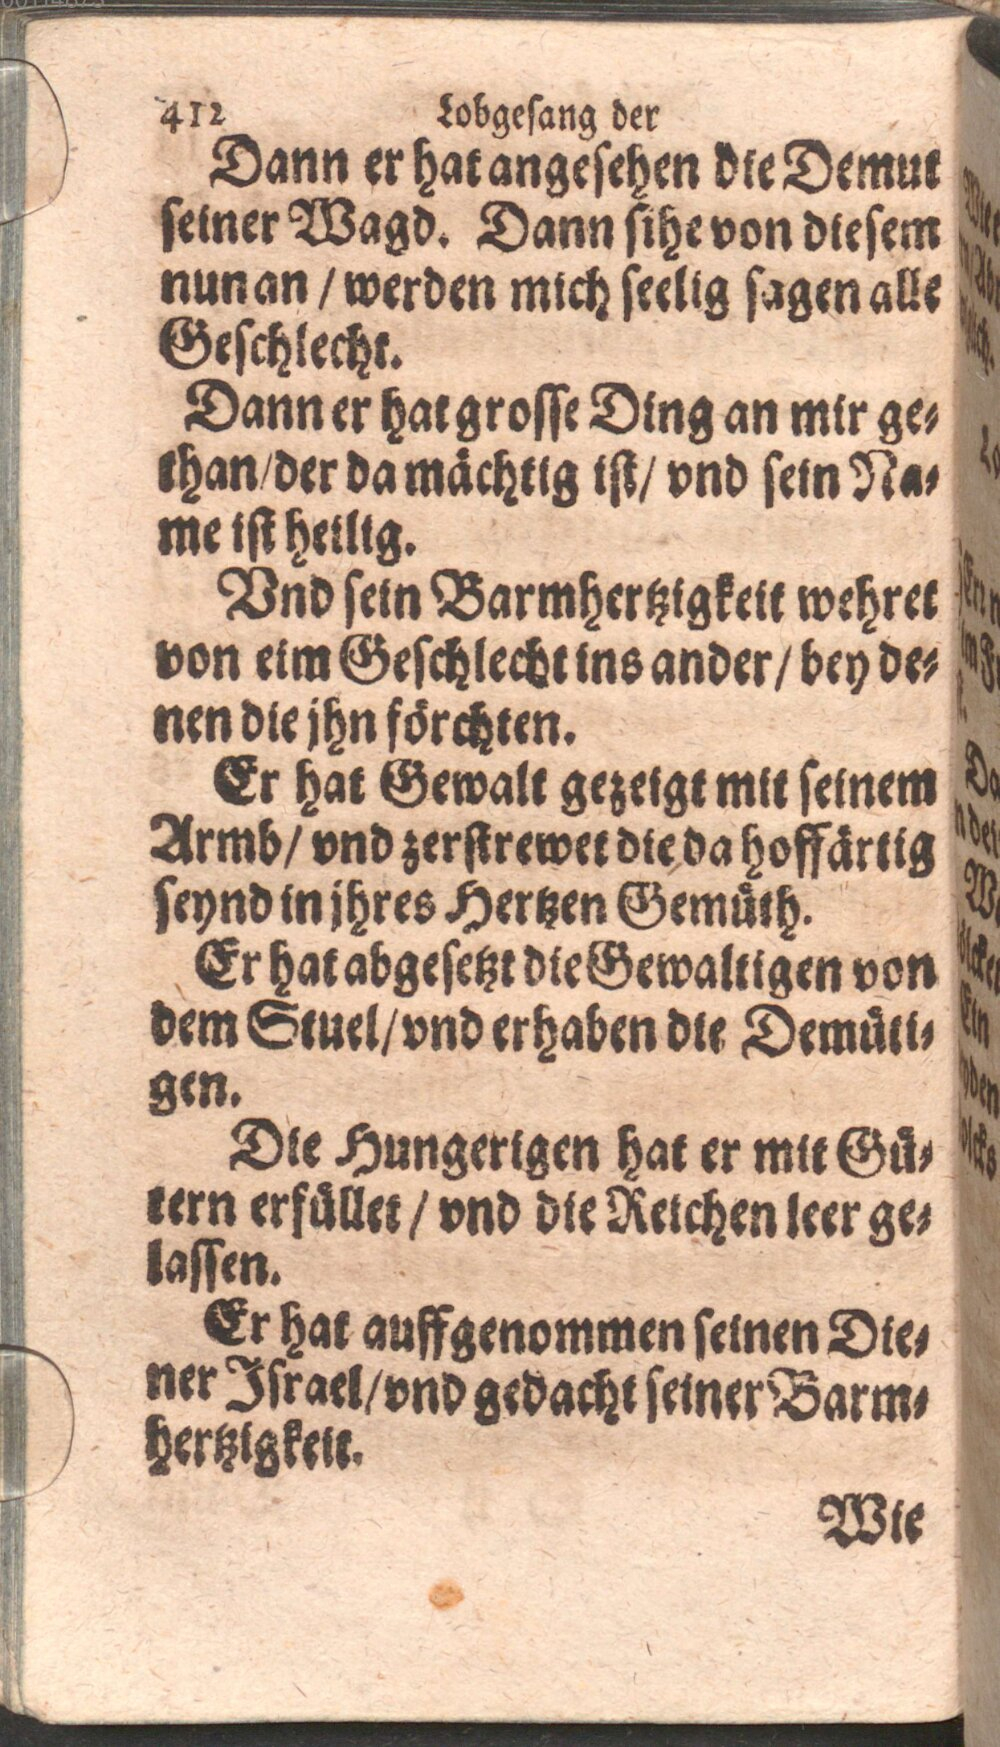 412 Lobgesang der
Dann er hat angesehen die Demut
seiner Wagd. Dann sihe von diesem
nun an / werden mich seelig sagen alle
Geschlecht.
Dann er hat grosse Ding an mir ge-
than / der da mächtig ist / vnd sein Na-
me ist heilig.
Vnd sein Barmhertzigkeit wehret
von eim Geschlecht ins ander / bey de-
nen die jhn förchten.
Er hat Gewalt gezeigt mit seinem
Armb / vnd zerstrewet die da hoffärtig
seynd in jhres Hertzen Gemüth.
Er hat abgesetzt die Gewaltigen von
dem Stuel / vnd erhaben die Demüti-
gen.
Die Hungerigen hat er mit Gü-
tern erfüllet / vnd die Reichen leer ge-
lassen.
Er hat auffgenommen seinen Die-
ner Israel / vnd gedacht seiner Barm-
hertzigkeit.
Wie